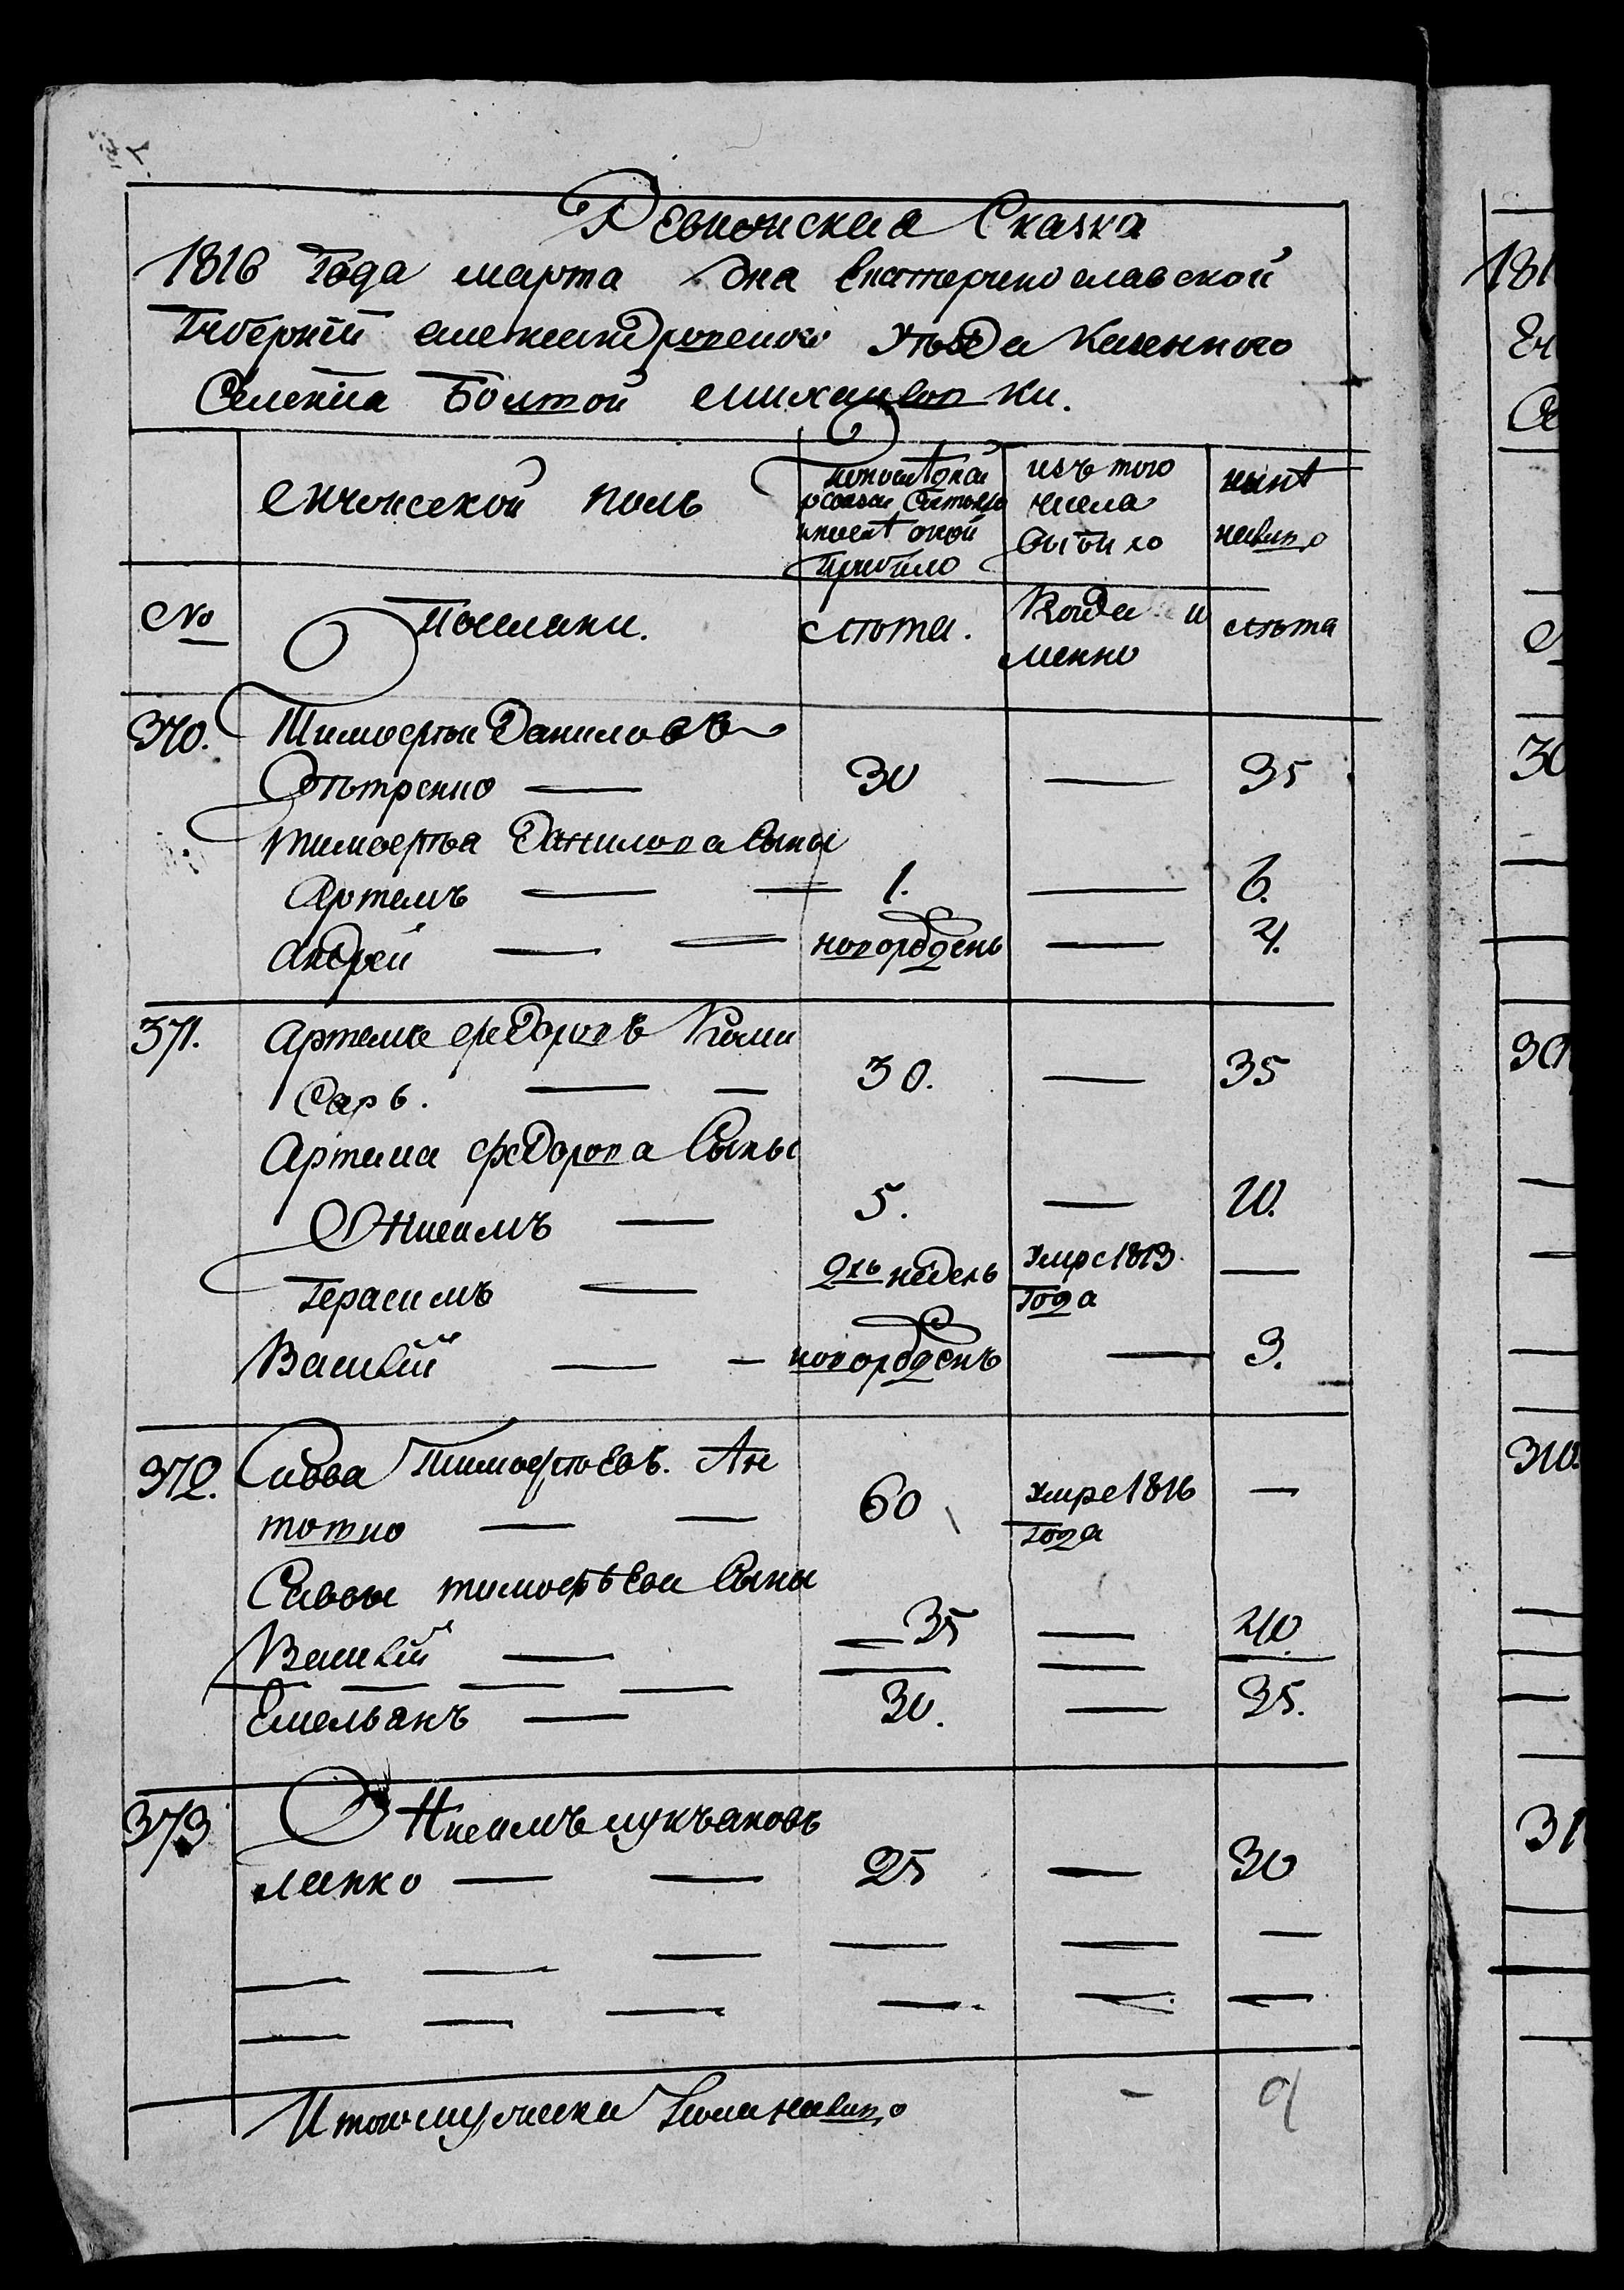 Ревизская Сказка
1816 Года марта дня Екатеринославской
Губернии александровского уѣзда Казенного
Селения Бѣлой михайловки.
мужеской полъ
по послѣдней
ревизии состояло
и послѣ оной
прибыло
изъ того
числа
выбыло
нынѣ
налицо
№
Поселяни.
лѣта.
Когда и
менно
лѣта
370. Тимофѣй Даниловъ
30 — 35
Тимофѣя Данилова сыны
Артемъ — — 1. — 6.
Андрей — — новорожденъ — 4.
371. Артемъ федоровъ Коми
саръ. — — 30. — 35
Артема федорова Сыны
Онисимъ — 5. — 10.
Герасимъ — 2хъ недель умре 1813 —
Года
Василій — — новорожденъ — 3.
372. Савва Тимофѣевъ. Ан
тотно — — 60 умре 1816 —
года
Саввы тимофѣева Сыны
Василій — 35 — 40
Емельянъ — 30. — 35.
373 Онисимъ лукъяновъ
лапко — — 25 — 30
Итого мужеска пола налицо — 9